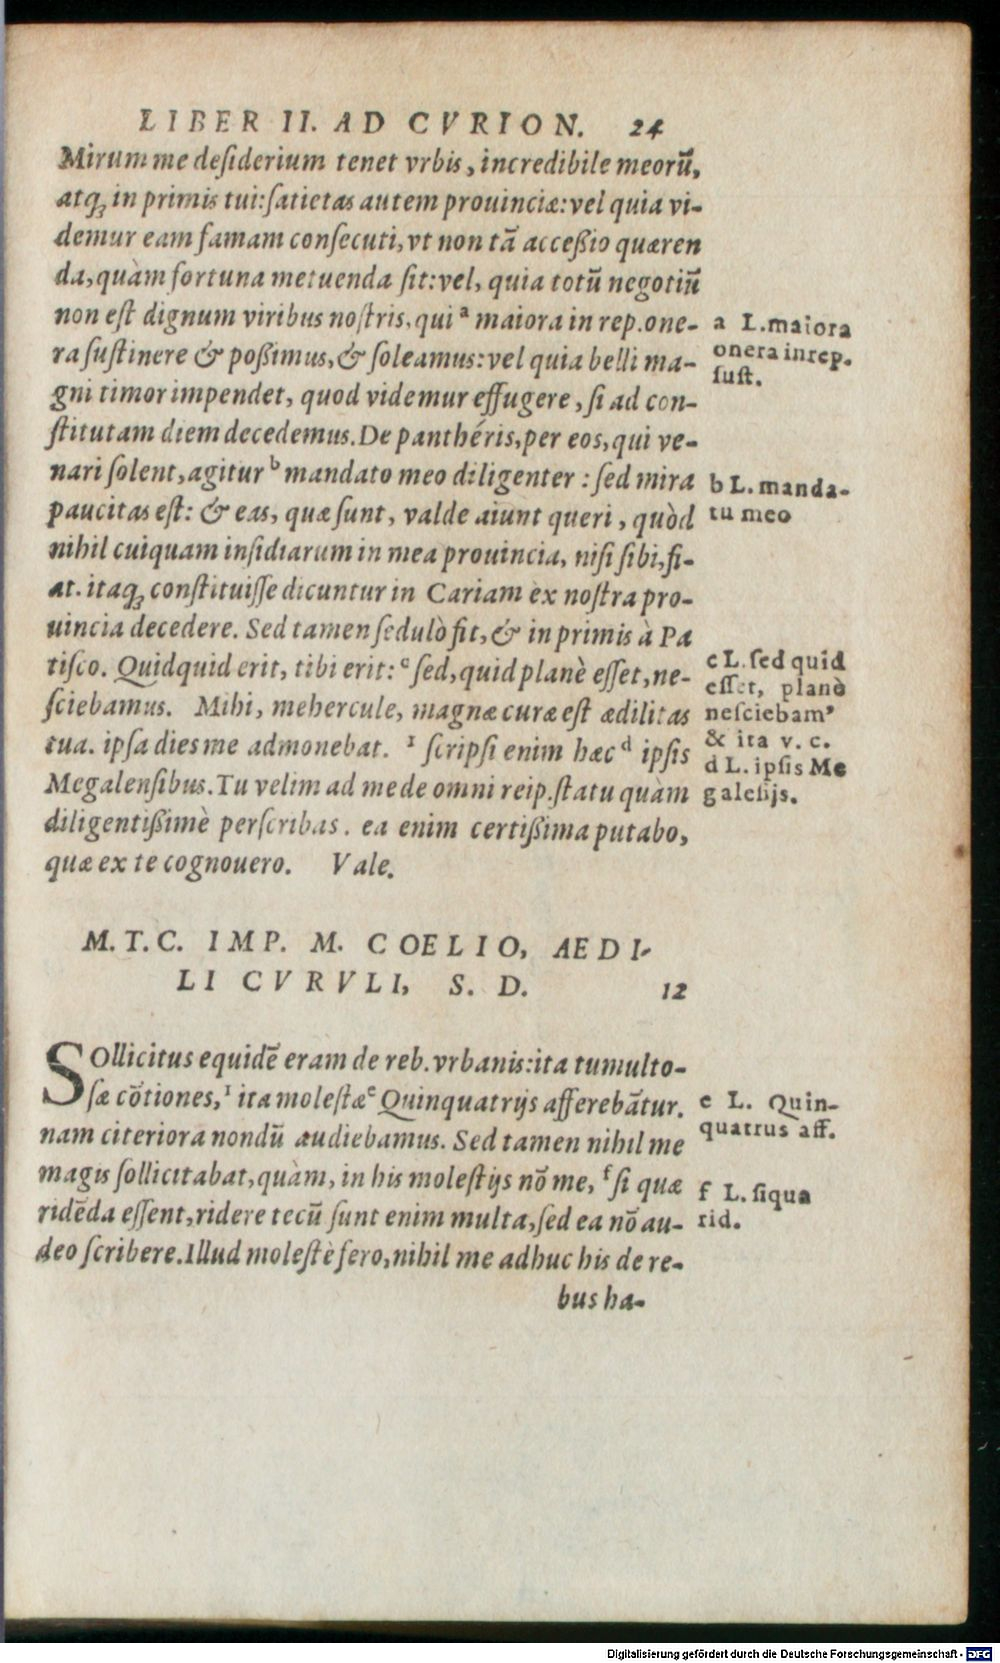 LIBER II. AD CVRION. 24
Mirum me desiderium tenet vrbis, incredibile meorū,
atq́ꝫ in primis tui: satietas autem prouinciæ: vel quia vi-
demur eam famam consecuti, vt non tā accessio quæren
da, quàm fortuna metuenda sit: vel, quia totū negotiū
non est dignum viribus nostris, qui ᵃ maiora in rep. one-
ra sustinere & possimus, & soleamus: vel quia belli ma-
gni timor impendet, quod videmur effugere, si ad con-
stitutam diem decedemus. De panthéris, per eos, qui ve-
nari solent, agitur ᵇ mandato meo diligenter: sed mira
paucitas est: & eas, quæ sunt, valde aiunt queri, quòd
nihil cuiquam insidiarum in mea prouincia, nisi sibi, fi-
at. itaq́ꝫ constituisse dicuntur in Cariam ex nostra pro-
uincia decedere. Sed tamen sedulò fit, & in primis à Pa
tisco. Quidquid erit, tibi erit: ᶜ sed, quid planè esset, ne-
sciebamus. Mihi, mehercule, magnæ curæ est ædilitas
tua. ipsa dies me admonebat. ¹ scripsi enim hæc ᵈ ipsis
Megalensibus. Tu velim ad me de omni reip. statu quam
diligentissimè perscribas. ea enim certissima putabo,
quæ ex te cognouero. Vale.
a L. maiora
onera in rep.
sust.
b L. manda-
tu meo
c L. sed quid
esset, planè
nesciebam'
& ita v. c.
d L. ipsis Me
galesijs.
M. T. C. IMP. M. COELIO, AEDI-
LI CVRVLI, S. D. 12
SOllicitus equidē eram de reb. vrbanis: ita tumulto-
sæ cōtiones, ¹ ita molestæ ᵉ Quinquatrijs afferebātur.
nam citeriora nondū audiebamus. Sed tamen nihil me
magis sollicitabat, quàm, in his molestijs nō me, ᶠ si quæ
ridēda essent, ridere tecū sunt enim multa, sed ea nō au-
deo scribere. Illud molestè fero, nihil me adhuc his de re-
bus ha-
e L. Quin-
quatrus aff.
f L. siqua
rid.
Digitalisierung gefördert durch die Deutsche Forschungsgemeinschaft - DFG